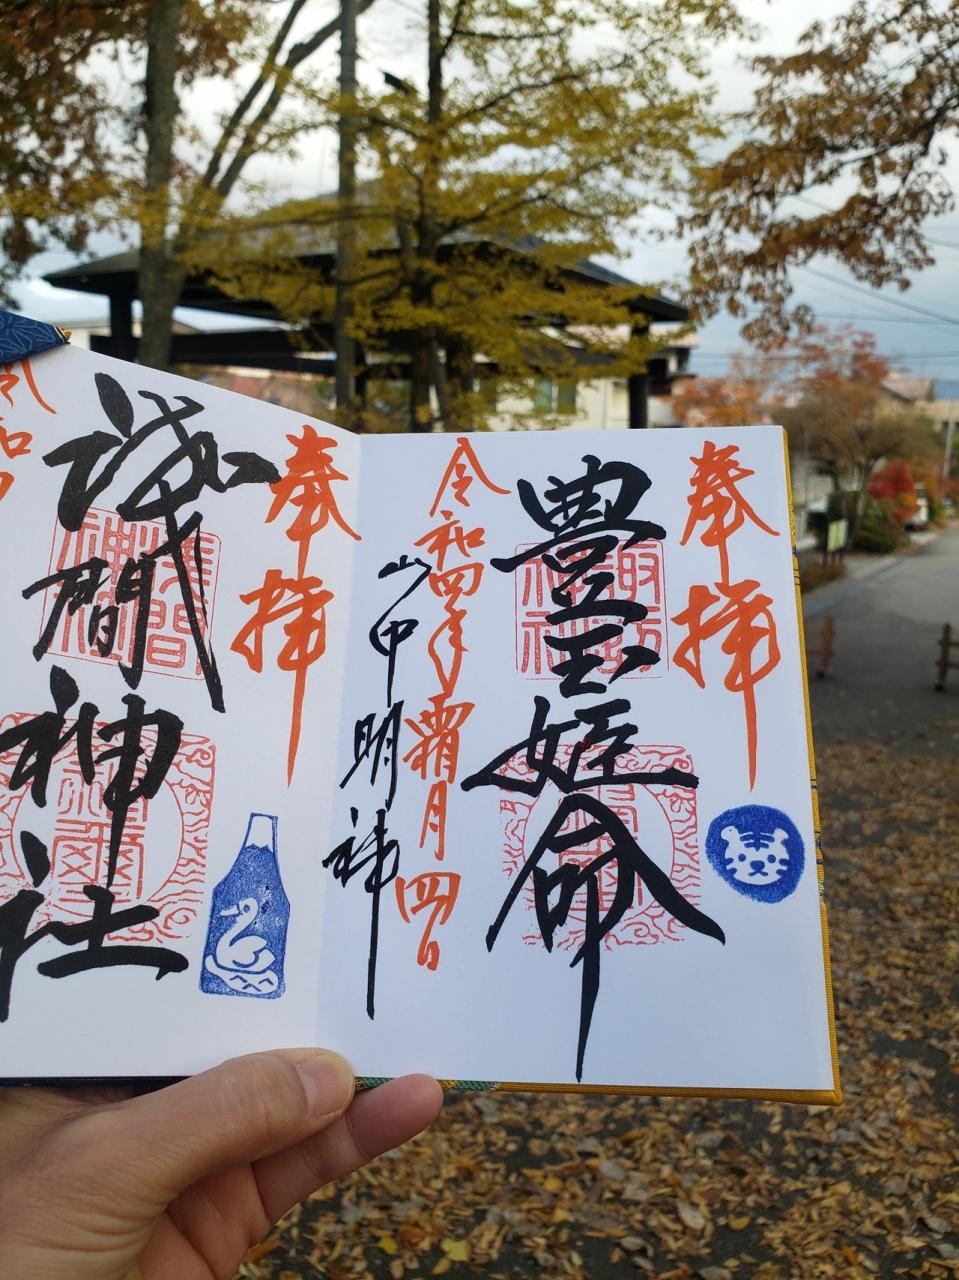 奉拝
豊玉姫命
令和四年霜月四日
山中明神
奉拝
淺間神社
令和